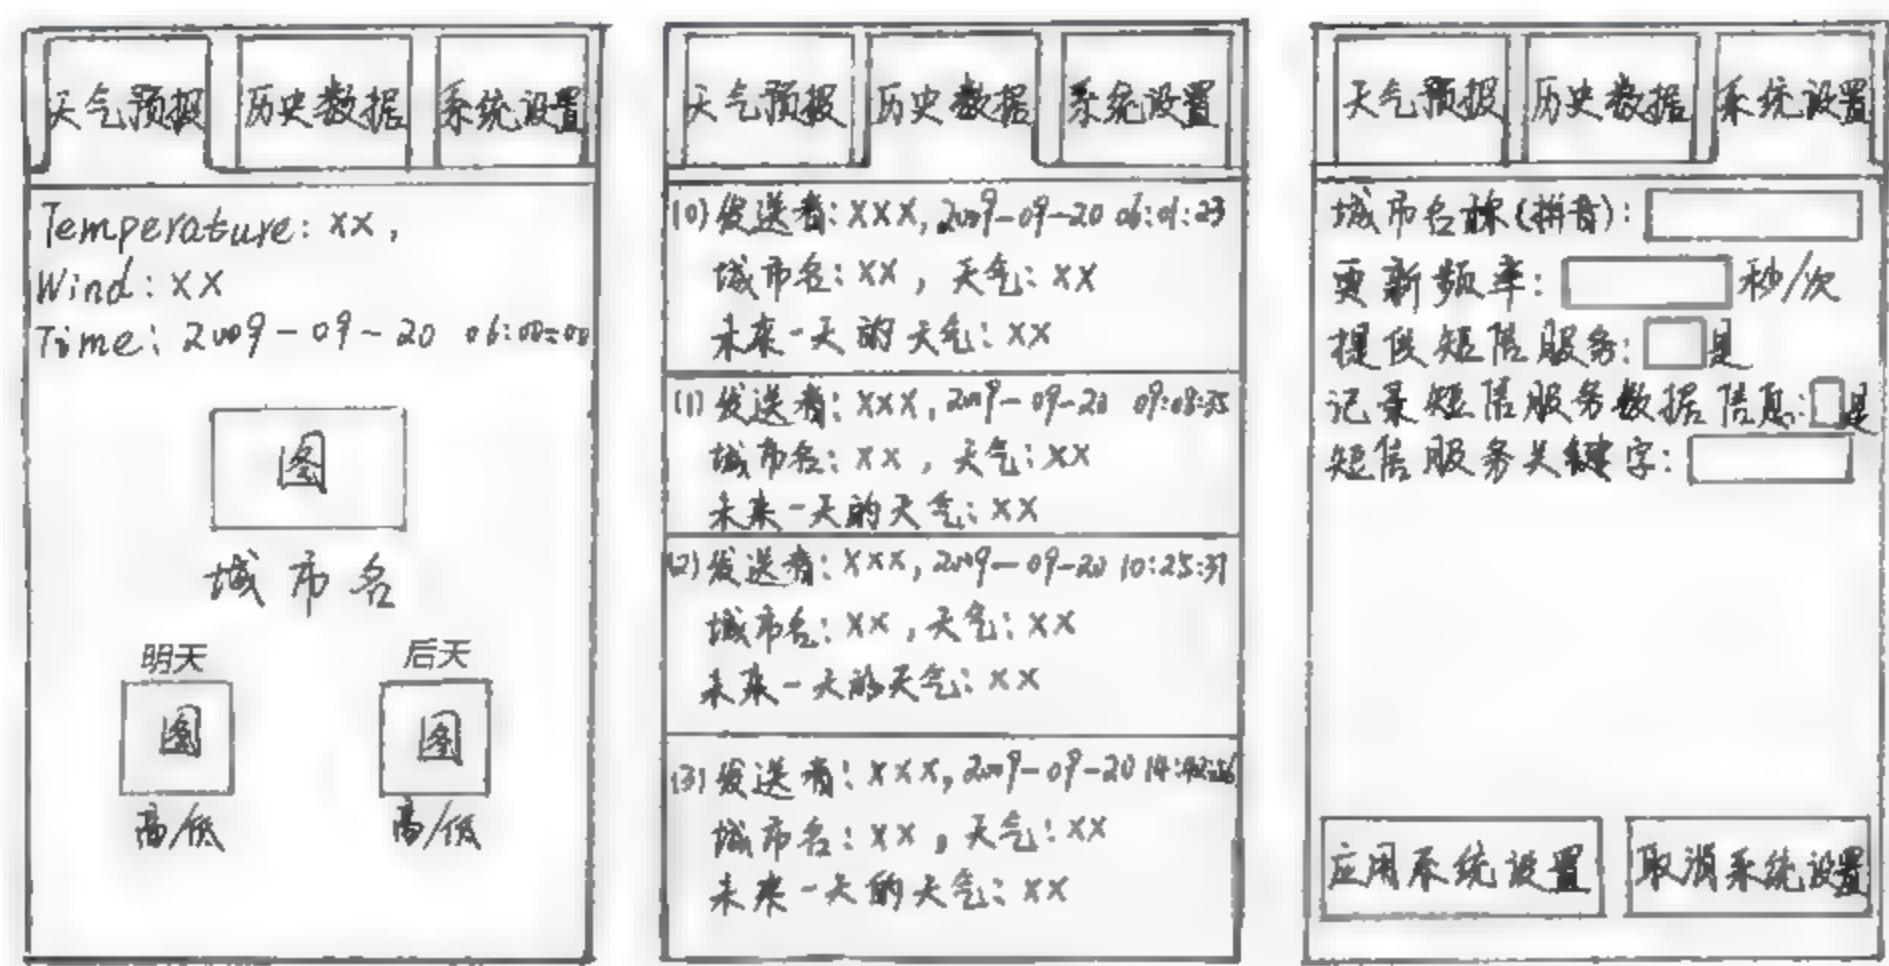 天气预报 历史数据 系统设置
Temperature: xx,
Wind: xx
Time: 2009-09-20 06:00:00
图
城市名
明天 后天
图 图
高/低 高/低
天气预报 历史数据 系统设置
(0) 发送者: xxx, 2009-09-20 06:01:23
城市名: xx, 天气: xx
未来一天的天气: xx
(1) 发送者: xxx, 2009-09-20 09:08:35
城市名: xx, 天气: xx
未来一天的天气: xx
(2) 发送者: xxx, 2009-09-20 10:25:37
城市名: xx, 天气: xx
未来一天的天气: xx
(3) 发送者: xxx, 2009-09-20
城市名: xx, 天气: xx
未来一天的天气: xx
天气预报 历史数据 系统设置
城市名称(拼音):
更新频率: 秒/次
提供短信服务: 是
记录短信服务数据信息: 是
短信服务关键字:
应用系统设置 取消系统设置